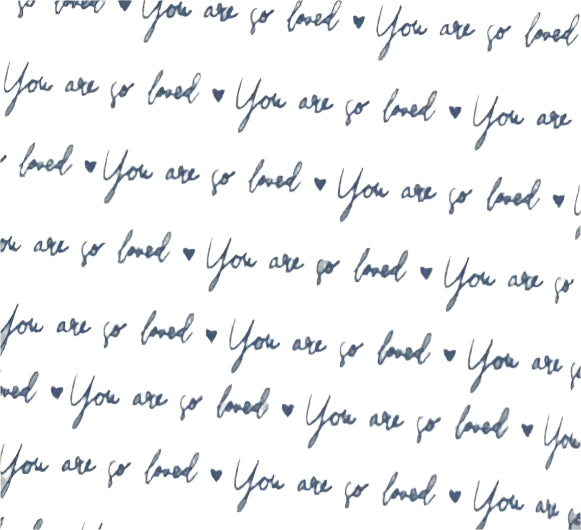 so loved ♥ You are so loved ♥ You are so loved
You are so loved ♥ You are so loved ♥ You are
loved ♥ You are so loved ♥ You are so loved ♥
You are so loved ♥ You are so loved ♥ You are so
You are so loved ♥ You are so loved ♥ You are so
loved ♥ You are so loved ♥ You are so loved ♥ You
You are so loved ♥ You are so loved ♥ You are so